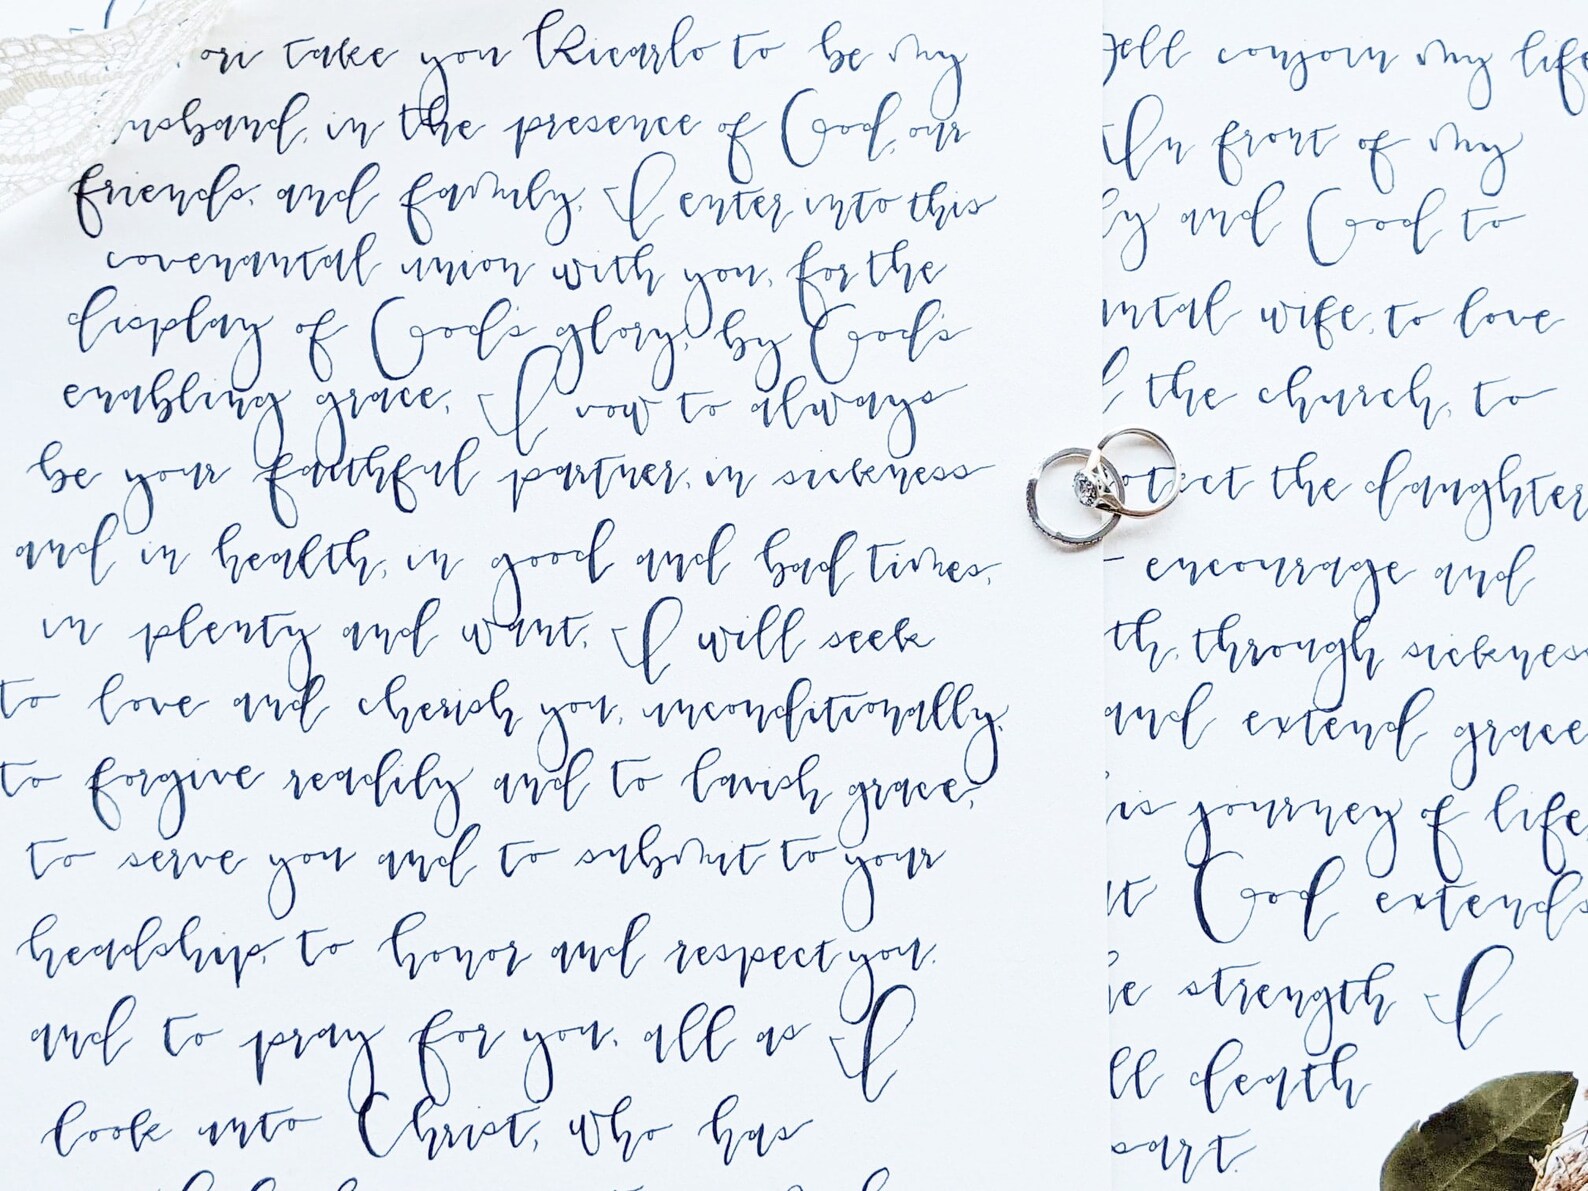 ori take you Ricarlo to be my
husband, in the presence of God, our
friends, and family, I enter into this
covenantal union with you, for the
display of God's glory, by God's
enabling grace, I vow to always
be your faithful partner, in sickness
and in health, in good and bad times,
in plenty and want, I will seek
to love and cherish you, unconditionally,
to forgive readily and to lavish grace,
to serve you and to submit to your
headship, to honor and respect you,
and to pray for you, all as I
look unto Christ, who has
conjoin my life
In front of my
ly and God to
ntal wife, to love
the church, to
otect the daughter
encourage and
th, through sickness
and extend grace
is journey of life,
at God extends
he strength I
ll death
part.